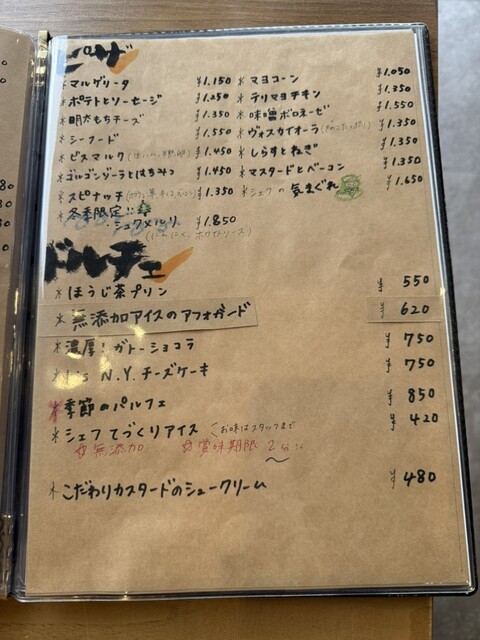 ピザ
*マルゲリータ ¥1.150
*ポテトとソーセージ ¥1.250
*明太もちチーズ ¥1.350
*シーフード ¥1.550
*ビスマルク ¥1.450
*ゴルゴンゾーラとはちみつ ¥1.450
*スピナッチ ¥1.350
*冬季限定!!
・シュクメルリ ¥1.850
(にんにく、ホワイトソース)
*マヨコーン ¥1.050
*テリマヨチキン ¥1.350
*味噌ボロネーゼ ¥1.550
*ヴォスカイオーラ ¥1.350
*しらすとねぎ ¥1.350
*マスタードとベーコン ¥1.350
*シェフの気まぐれ ¥1.650
ドルチェ
*ほうじ茶プリン ¥550
*無添加アイスのアフォガード ¥620
*濃厚!ガトーショコラ ¥750
*N.Y.チーズケーキ ¥750
*季節のパルフェ ¥850
*シェフてづくりアイス <お味はスタッフまで ¥420
無添加 賞味期限2分!!
*こだわりカスタードのシュークリーム ¥480